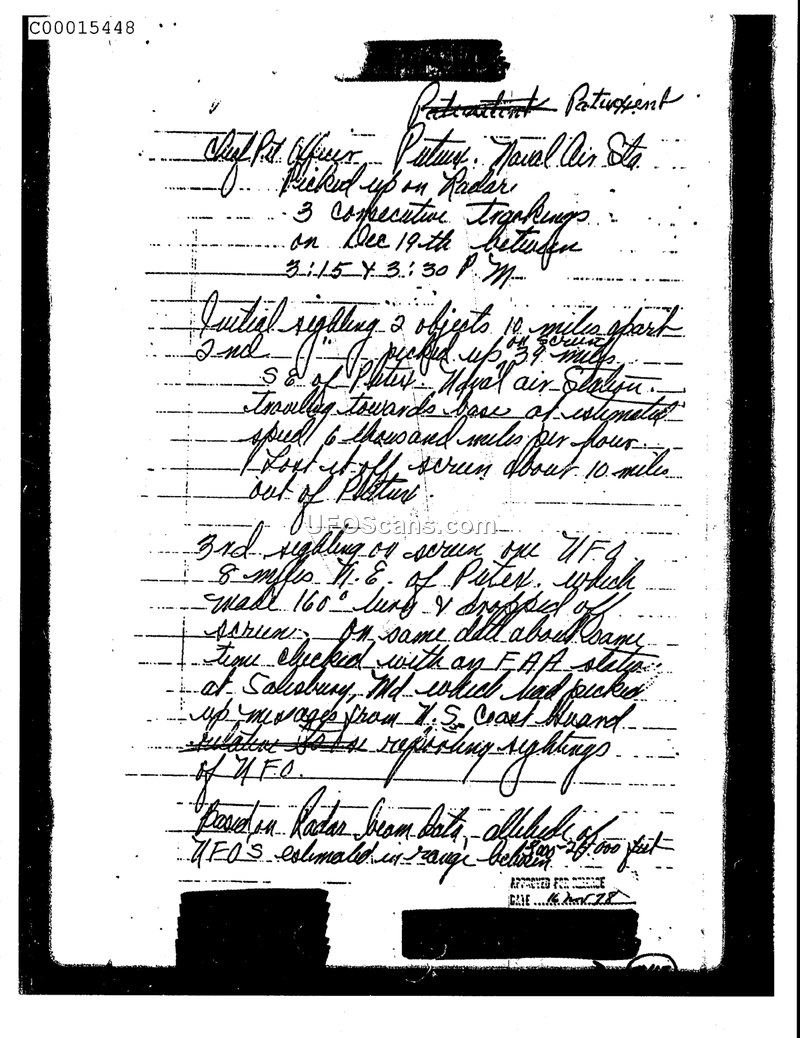 C00015448
Patuxent
Chief Pet Officer Putux. Naval Air Sta.
Picked up on Radar
3 consecutive trackings
on Dec 19th between
3:15 & 3:30 PM
Initial sighting 2 objects 10 miles apart
2nd " picked up on screen 39 miles
SE of Putex. Naval air Station.
traveling towards base at estimated
speed 6 thousand miles per hour.
Lost it off screen about 10 miles
out of Putux.
UFOScans.com
3rd sighting on screen one UFO
8 miles N.E. of Putex. which
made 160° turn & dropped off
screen. On same date about same
time checked with an FAA station
at Salisbury, Md which had picked
up messages from U.S. Coast Guard
reporting sightings
of UFO.
Based on Radar beam data, altitude of
UFOS estimated in range between feet
APPROVED FOR RELEASE
DATE 16 Nov 78